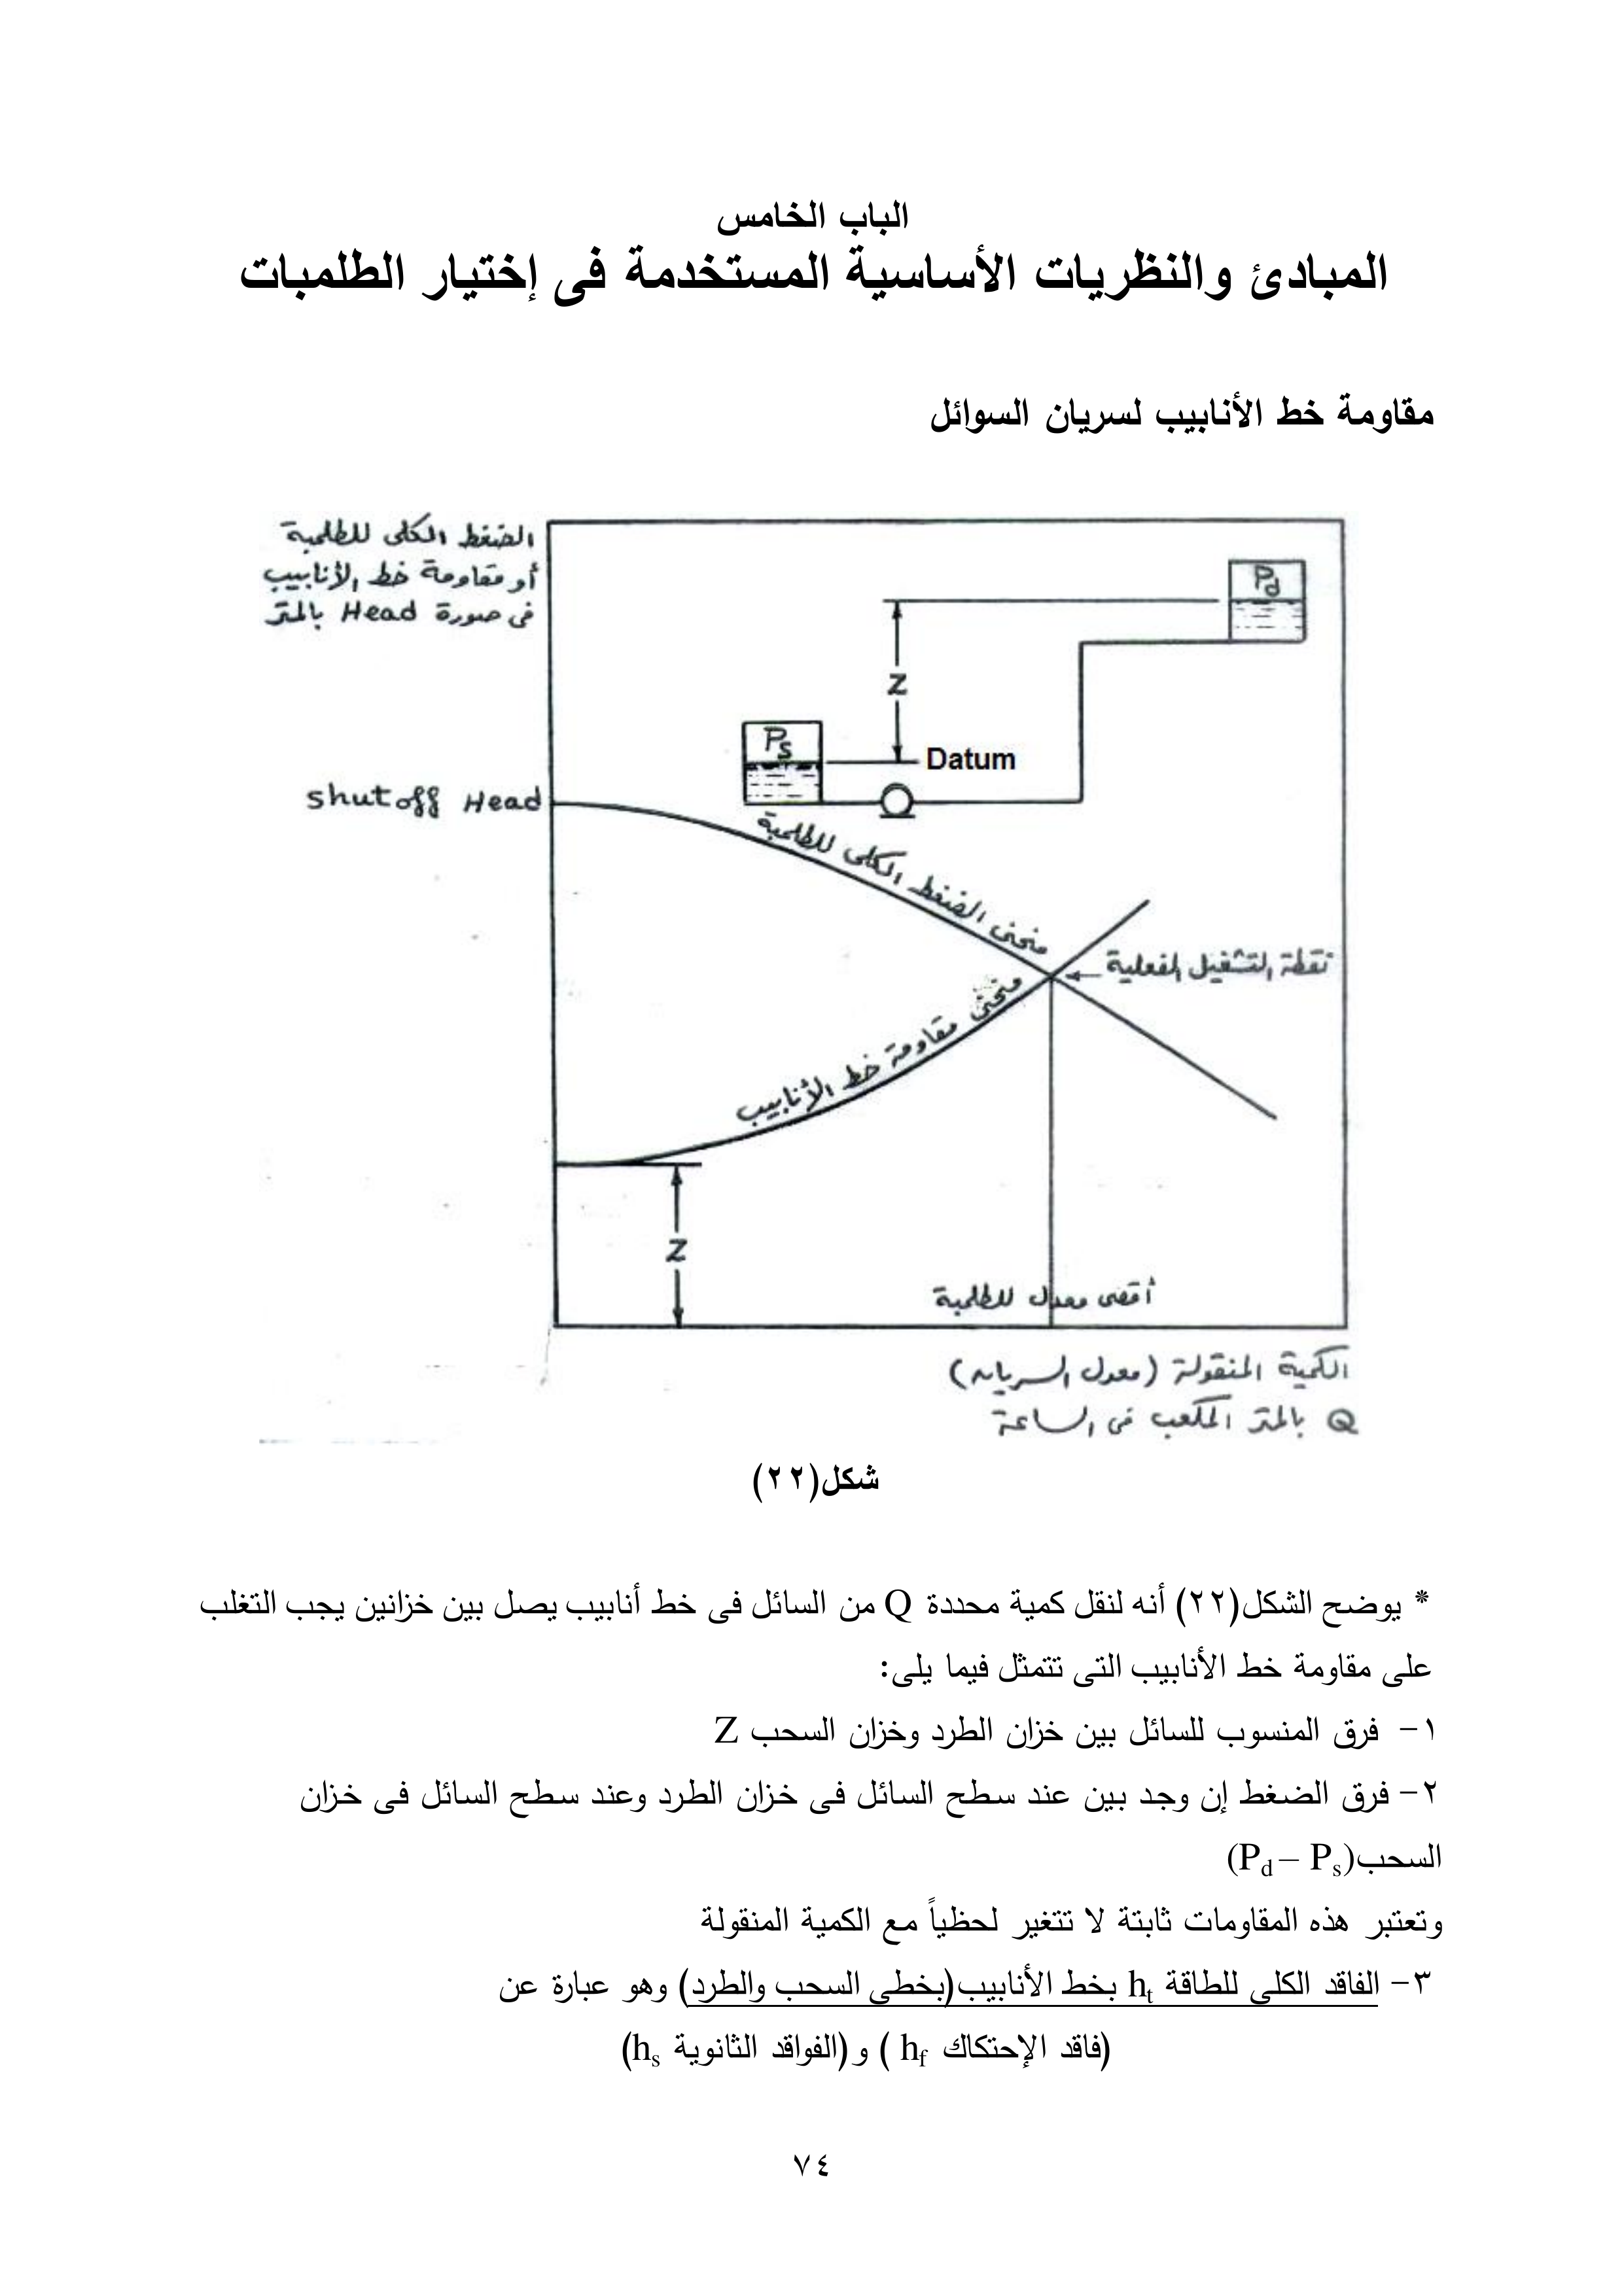 الباب الخامس
المبادئ والنظريات الأساسية المستخدمة فى إختيار الطلمبات
مقاومة خط الأنابيب لسريان السوائل
الضغط الكلى للطلمبة
أو مقاومة خط الأنابيب
فى صورة Head بالمتر
Pd
Z
Ps
Datum
shutoff Head
منحنى الضغط الكلى للطلمبة
نقطة التشغيل الفعلية
منحنى مقاومة خط الأنابيب
Z
أقصى معدل للطلمبة
الكمية المنقولة (معدل السريان)
Q بالمتر المكعب فى الساعة
شكل(٢٢)
* يوضح الشكل(٢٢) أنه لنقل كمية محددة Q من السائل فى خط أنابيب يصل بين خزانين يجب التغلب
على مقاومة خط الأنابيب التى تتمثل فيما يلى:
١- فرق المنسوب للسائل بين خزان الطرد وخزان السحب Z
٢- فرق الضغط إن وجد بين عند سطح السائل فى خزان الطرد وعند سطح السائل فى خزان
السحب(Pd – Ps)
وتعتبر هذه المقاومات ثابتة لا تتغير لحظياً مع الكمية المنقولة
٣- الفاقد الكلى للطاقة ht بخط الأنابيب(بخطى السحب والطرد) وهو عبارة عن
(فاقد الإحتكاك hf ) و(الفواقد الثانوية hs)
٧٤